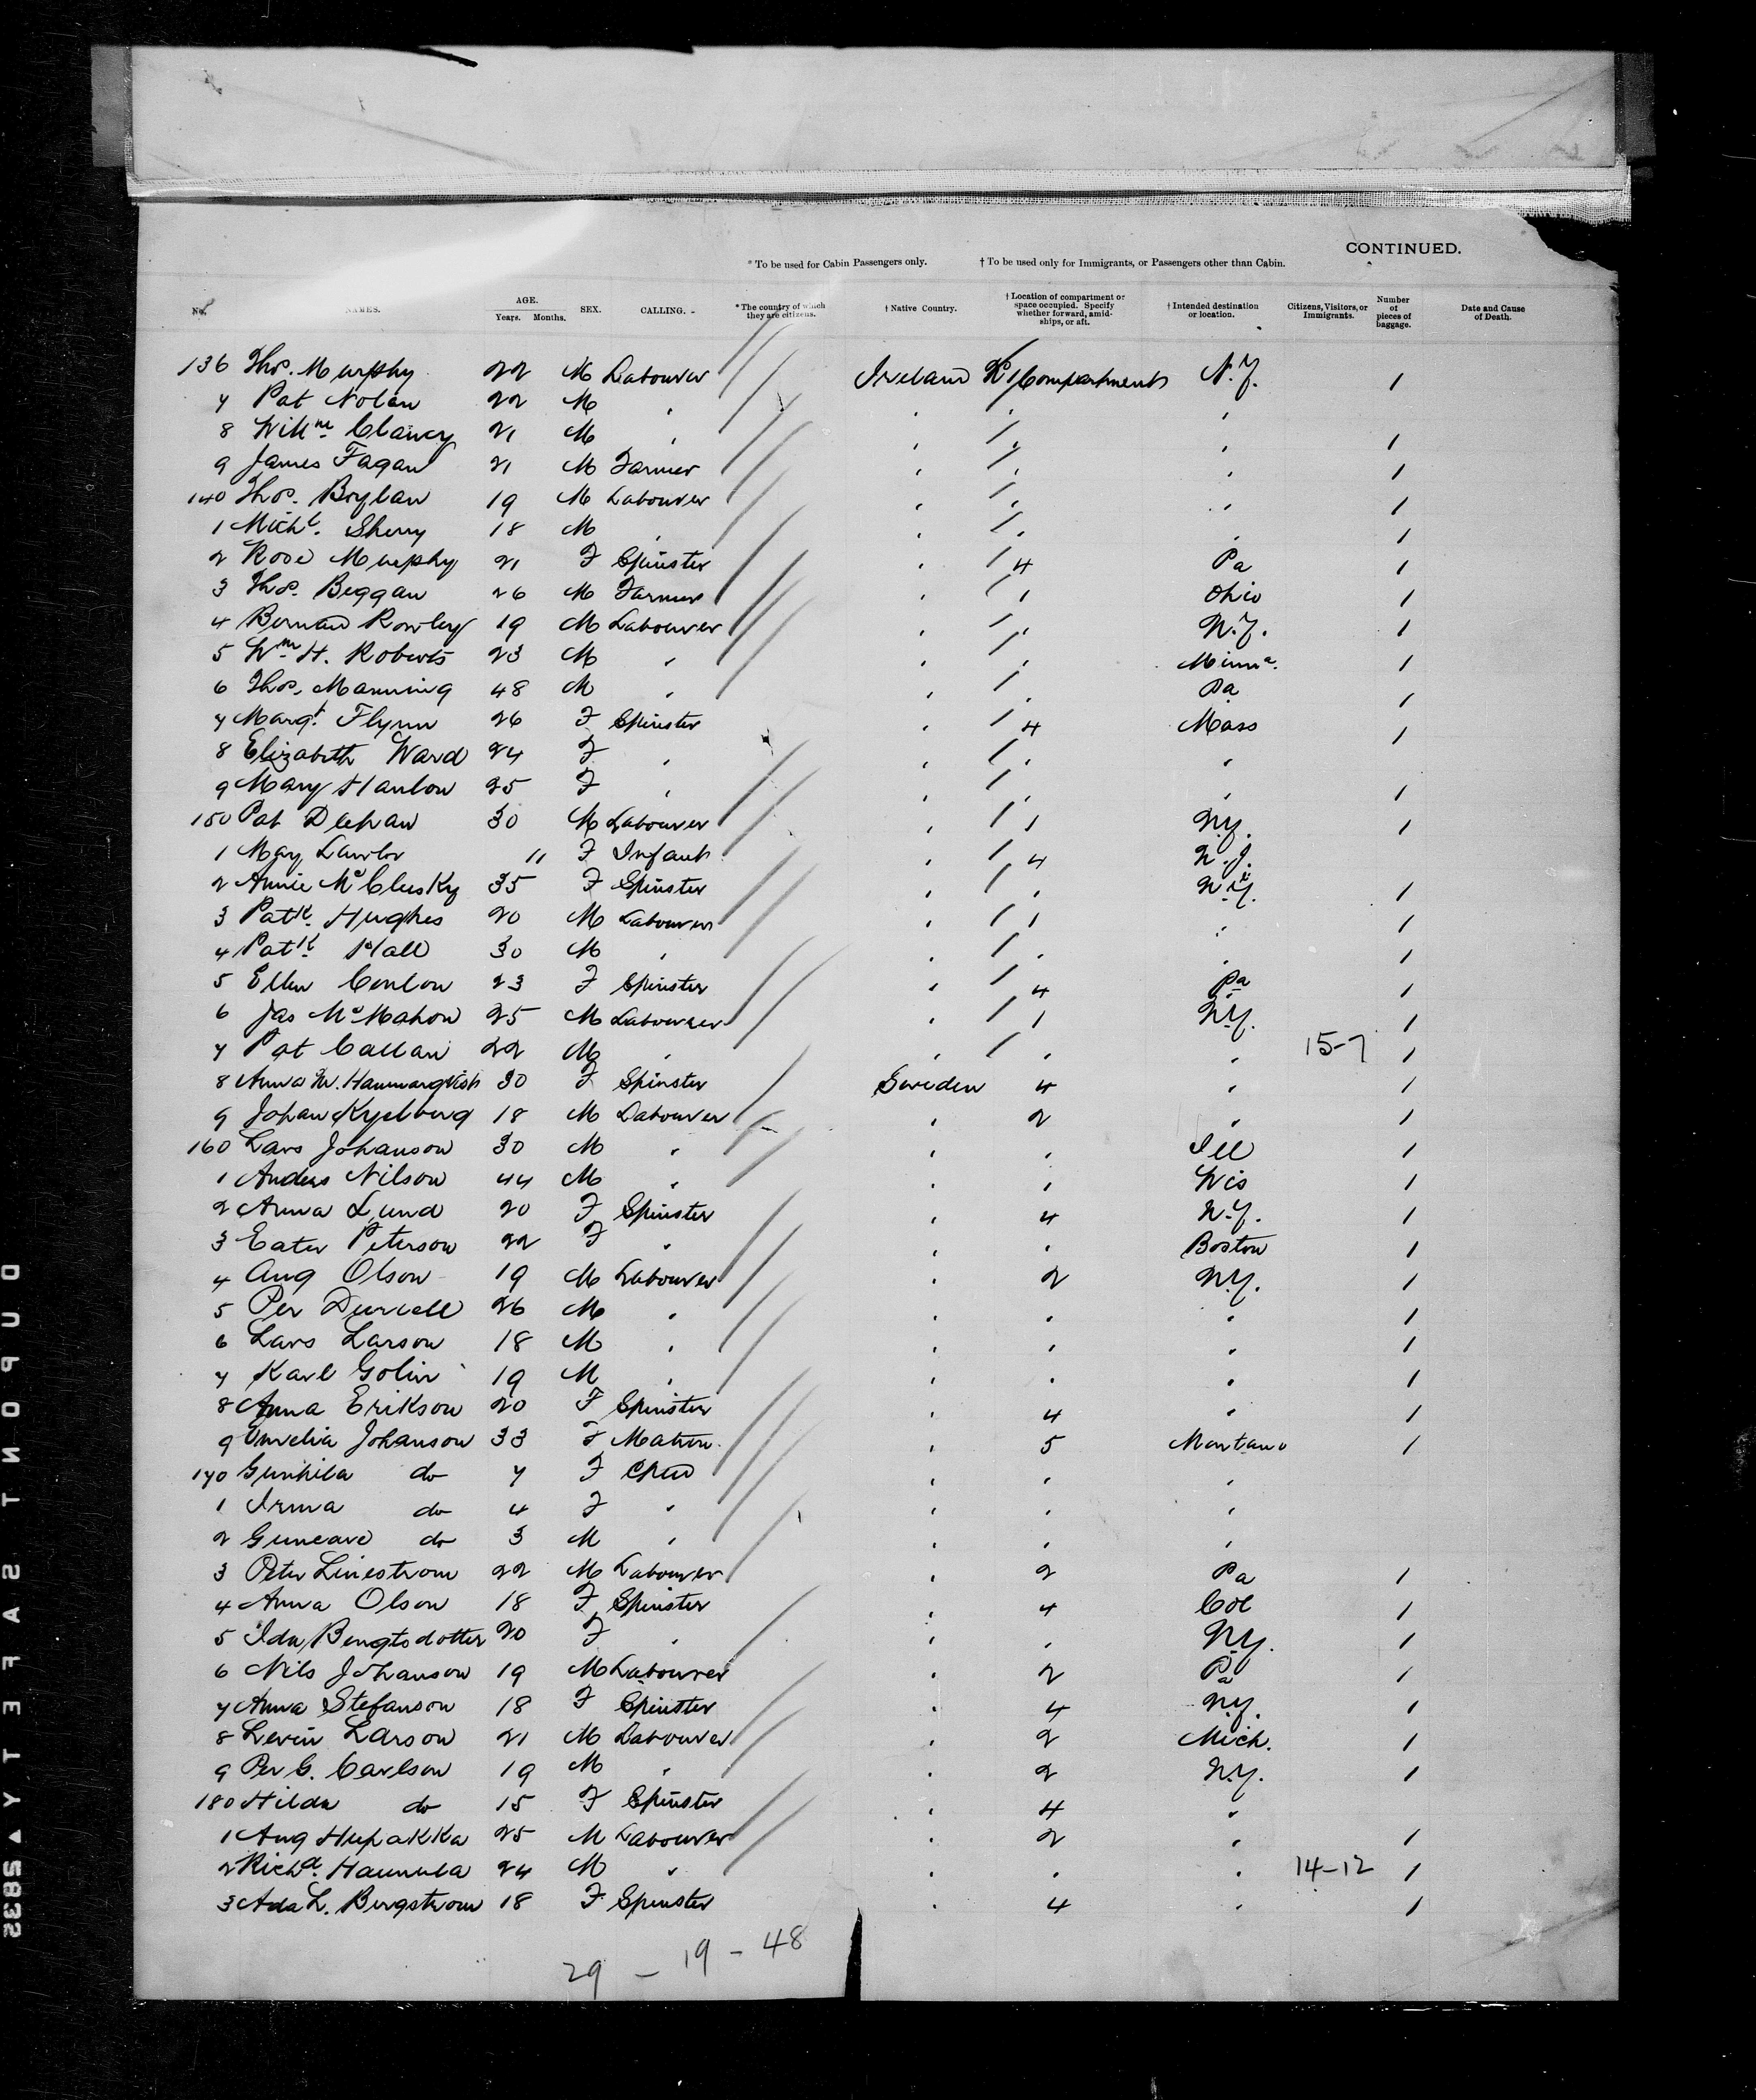 CONTINUED.
* To be used for Cabin Passengers only. † To be used only for Immigrants, or Passengers other than Cabin.
No. NAMES. AGE. Years. Months. SEX. CALLING. * The country of which they are citizens. † Native Country. † Location of compartment or space occupied. Specify whether forward, amid-ships, or aft. † Intended destination or location. Citizens, Visitors, or Immigrants. Number of pieces of baggage. Date and Cause of Death.
136 Thos. Murphy 22 M Labourer Ireland 1 Compartment N.Y. 1
7 Pat Nolan 22 M " " " "
8 Willm Clancy 21 M " " " " 1
9 James Fagan 21 M Farmer " " " 1
140 Thos. Boylan 19 M Labourer " " " 1
1 Michl. Sherry 18 M " " " " 1
2 Rose Murphy 21 F Spinster " 4 Pa 1
3 Thos. Beggan 26 M Farmer " 1 Ohio 1
4 Bernard Rowley 19 M Labourer " " N.Y. 1
5 Wm H. Roberts 23 M " " " Minna. 1
6 Thos. Manning 48 M " " " Pa 1
7 Margt. Flynn 26 F Spinster " 4 Mass 1
8 Elizabeth Ward 24 F " " " "
9 Mary Hanlon 25 F " " " " 1
150 Pat Deehan 30 M Labourer " 1 N.Y. 1
1 May Lawlor 11 F Infant " 4 N.J.
2 Annie McClusky 35 F Spinster " " N.Y. 1
3 Patk. Hughes 20 M Labourer " 1 " 1
4 Patk. Hall 30 M " " " " 1
5 Ellen Conlon 23 F Spinster " 4 Pa 1
6 Jas McMahon 25 M Labourer " 1 N.Y. 1
7 Pat Callan 22 M " " " " 15-7 1
8 Anna M. Hammarqvist 30 F Spinster Sweden 4 " 1
9 Johan Kyelberg 18 M Labourer " 2 " 1
160 Lars Johanson 30 M " " " Ill 1
1 Anders Nilson 44 M " " " Wis 1
2 Anna Lund 20 F Spinster " 4 N.Y. 1
3 Eater Peterson 22 F " " " Boston 1
4 Aug Olson 19 M Labourer " 2 N.Y. 1
5 Per 26 M " " " " 1
6 Lars Larson 18 M " " " " 1
7 Karl Golin 19 M " " " " 1
8 Anna Erikson 20 F Spinster " 4 " 1
9 Johanson 33 F Matron. " 5 Montana 1
170 Gunhila do 7 F Child " " "
1 Irma do 4 F " " " "
2 do 3 M " " " "
3 Peter Linestrom 22 M Labourer " 2 Pa 1
4 Anna Olson 18 F Spinster " 4 Col 1
5 Ida Bengtsdotter 20 F " " " N.Y. 1
6 Nils Johanson 19 M Labourer " 2 Pa 1
7 Anna Stefanson 18 F Spinster " 4 N.Y. 1
8 Levin Larson 21 M Labourer " 2 Mich. 1
9 Per G. Carlson 19 M " " 2 N.Y. 1
180 Hilda do 15 F Spinster " 4 "
1 Aug Hupakka 25 M Labourer " 2 " 1
2 Richd. Hannula 24 M " " " " 14-12 1
3 Ada L. Bergstrom 18 F Spinster " 4 " 1
29 - 19 - 48
DUPONT SAFETY ▲ S832